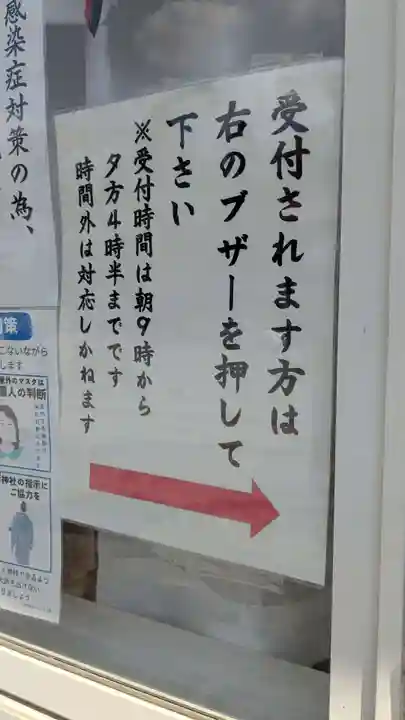 受付されます方は
右のブザーを押して
下さい
※受付時間は朝9時から
夕方4時半までです
時間外は対応しかねます
感染症対策の為、
策
こないながら
します
屋外のマスクは
個人の判断
神社の指示に
ご協力を